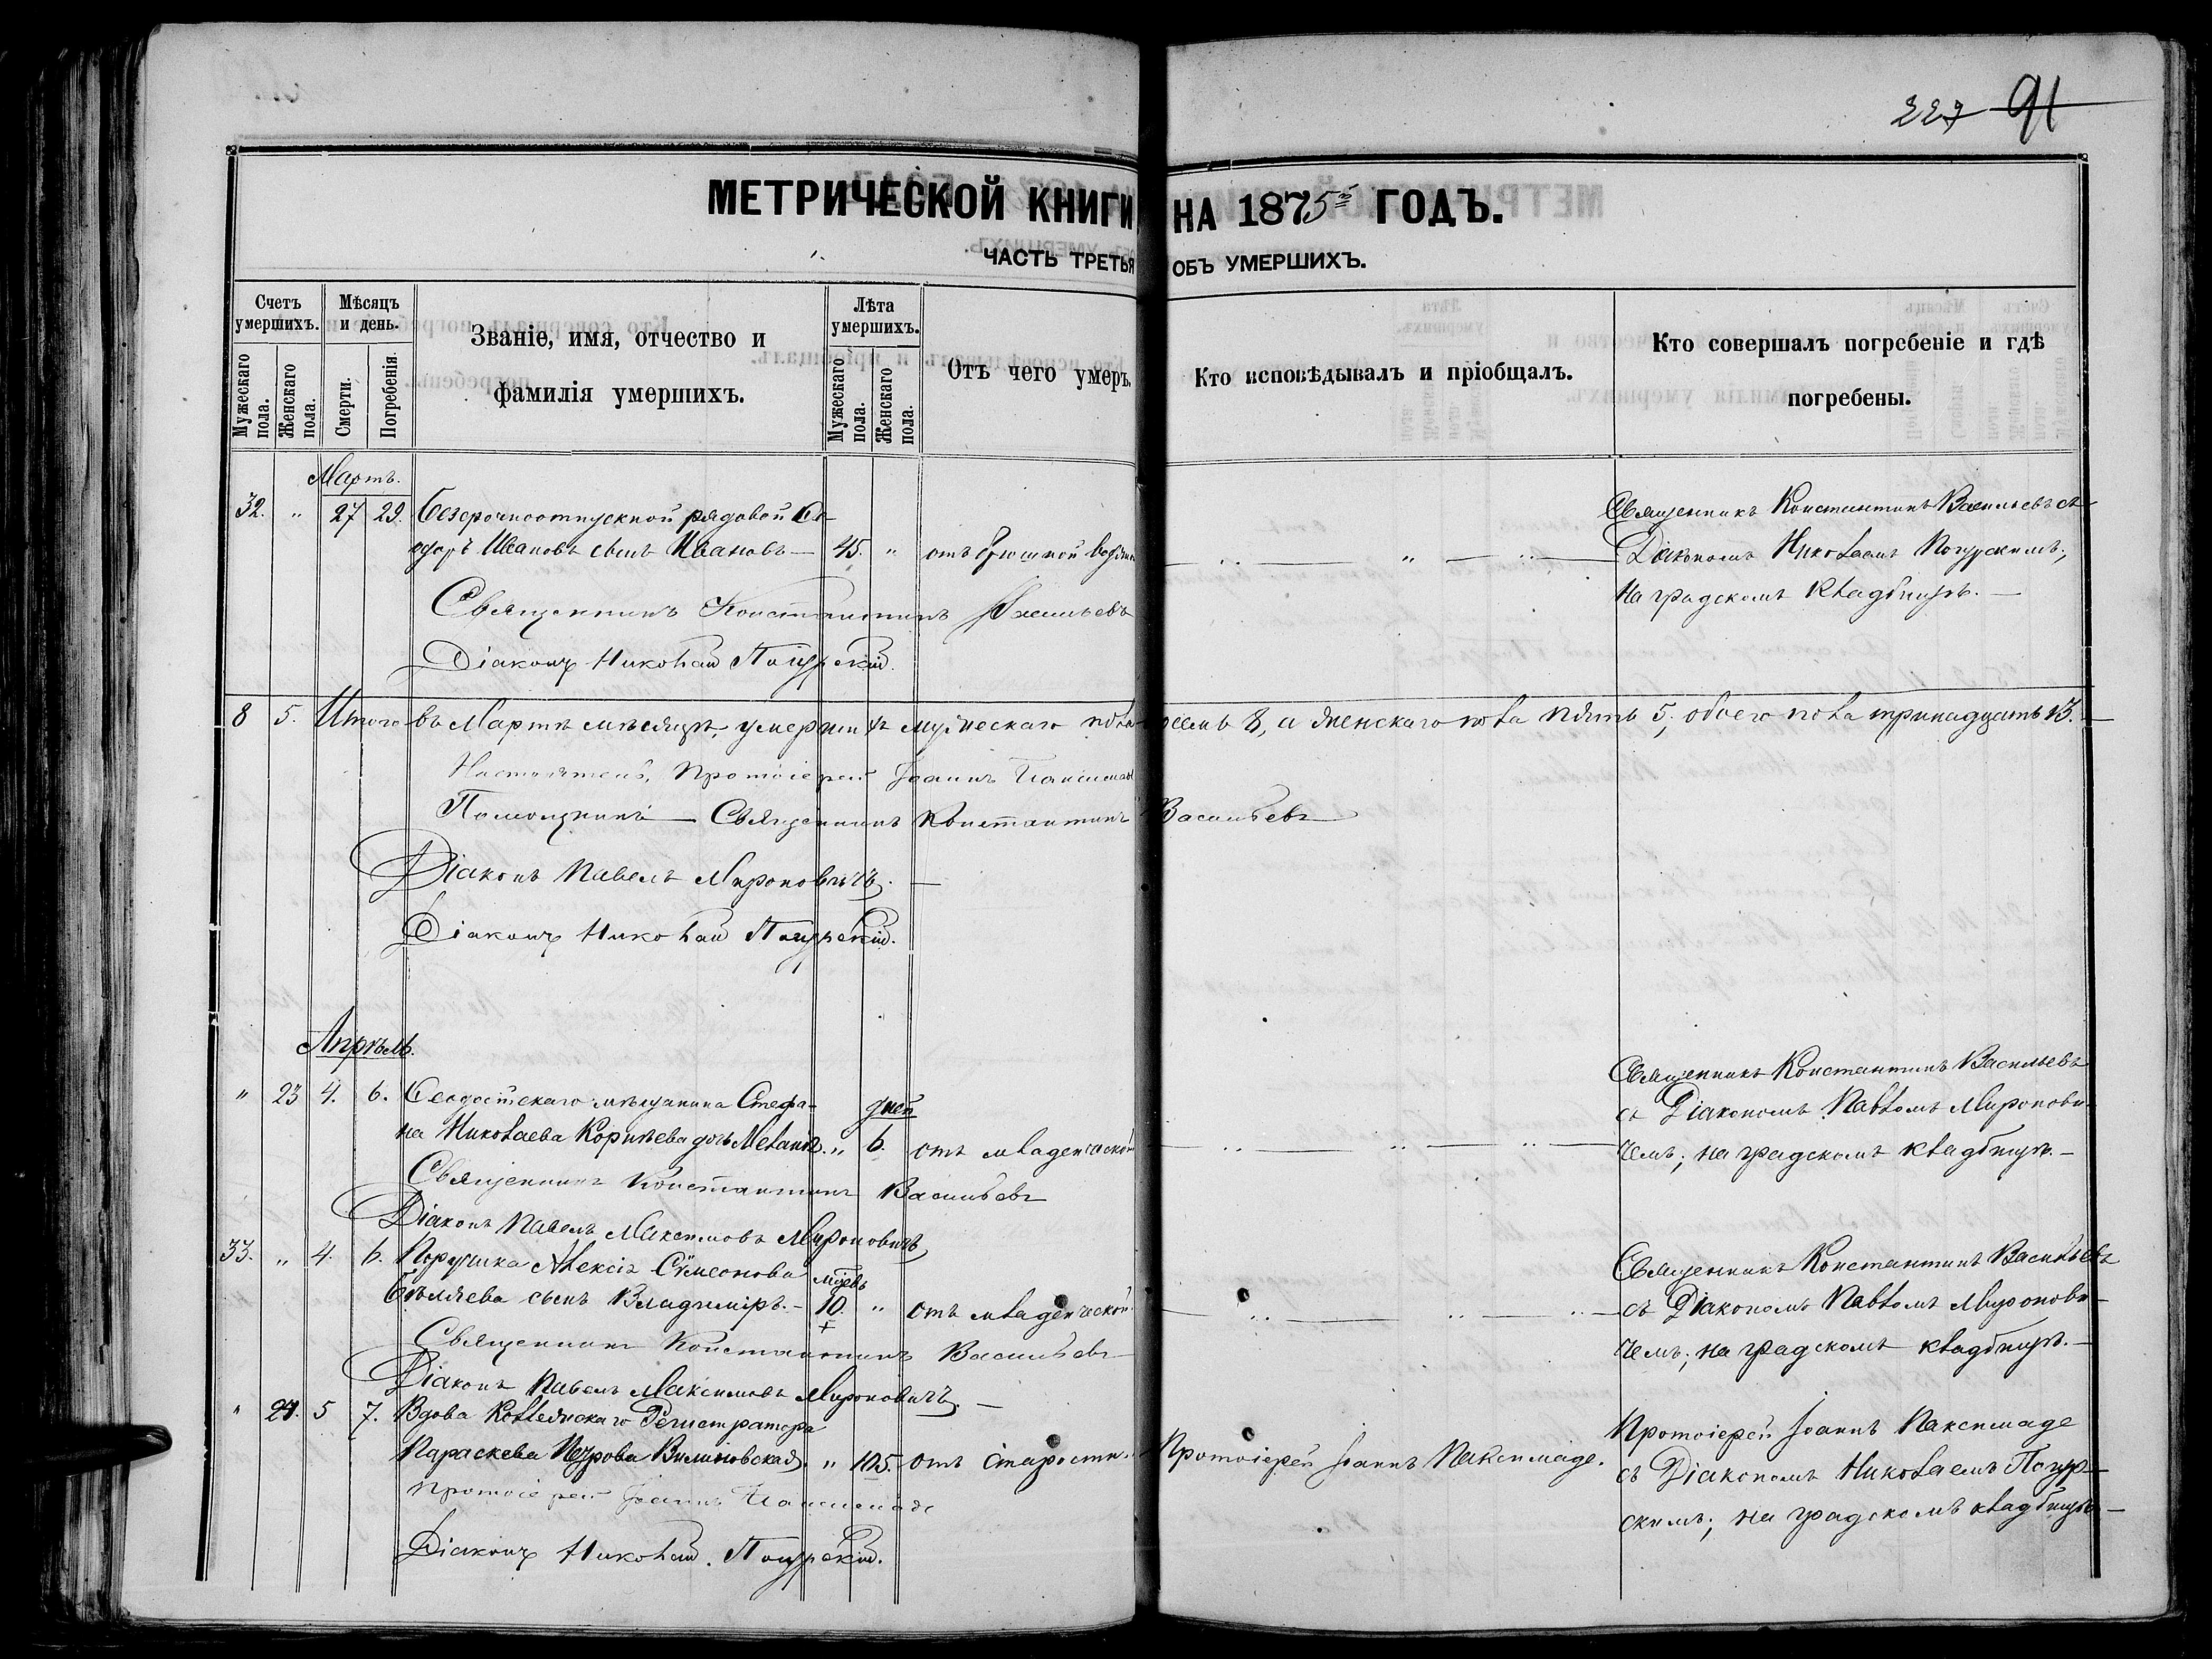 227 91
МЕТРИЧЕСКОЙ КНИГИ НА 1875й ГОДЪ.
ЧАСТЬ ТРЕТЬЯ ОБЪ УМЕРШИХЪ.
Счетъ умершихъ.
Мужескаго пола.
Женскаго пола.
Мѣсяцъ и день.
Смерти.
Погребенія.
Званіе, имя, отчество и
фамилія умершихъ.
Лѣта умершихъ.
Мужескаго пола.
Женскаго пола.
Отъ чего умеръ.
Кто исповѣдывалъ и пріобщалъ.
Кто совершалъ погребеніе и гдѣ
погребены.
Мартъ.
32. " 27 29. Безсрочноотпускной рядовой
Ивановъ сынъ Ивановъ — 45. " отъ брюшной
Священникъ Константинъ Васильевъ съ
Діакономъ Николаемъ
на градскомъ кладбищѣ. —
Священникъ Константинъ Васильевъ
Діаконъ Николай
8 5. Итого въ Мартѣ мѣсяцѣ, умерших мужескаго пола восемь 8, а женскаго пола пять 5; обоего пола тринадцать 13. —
Настоятель, Протоіерей Іоаннъ
Помощникъ — Священникъ Константинъ Васильевъ
Діаконъ Павелъ Мироновичъ. —
Діаконъ Николай
Апрѣль.
" 23 4. 6. Ѳеодосійскаго мѣщанина Стефа-
на Николаева Корнѣева дочь Меланія. " дней 6. отъ младенческой
Священникъ Константинъ Васильевъ
съ Діакономъ Павломъ Миронови-
чемъ; на градскомъ кладбищѣ. —
Священникъ Константинъ Васильевъ
Діаконъ Павелъ Максимовъ Мироновичъ
33. " 4. 6. Поручика Алексія Сѵмеонова
Бѣляева сынъ Владиміръ. — мѣсцевъ 10. " отъ младенческой
Священникъ Константинъ Васильевъ
съ Діакономъ Павломъ Миронови-
чемъ; на градскомъ кладбищѣ. —
Священникъ Константинъ Васильевъ
Діаконъ Павелъ Максимовъ Мироновичъ. —
" 24. 5 7. Вдова Коллежскаго Регистратора
Параскева Петрова " 105. отъ старости. Протоіерей Іоаннъ Паксимаде.
Протоіерей Іоаннъ Паксимаде
съ Діакономъ Николаемъ
на градскомъ кладбищѣ —
Протоіерей Іоаннъ Паксимаде
Діаконъ Николай